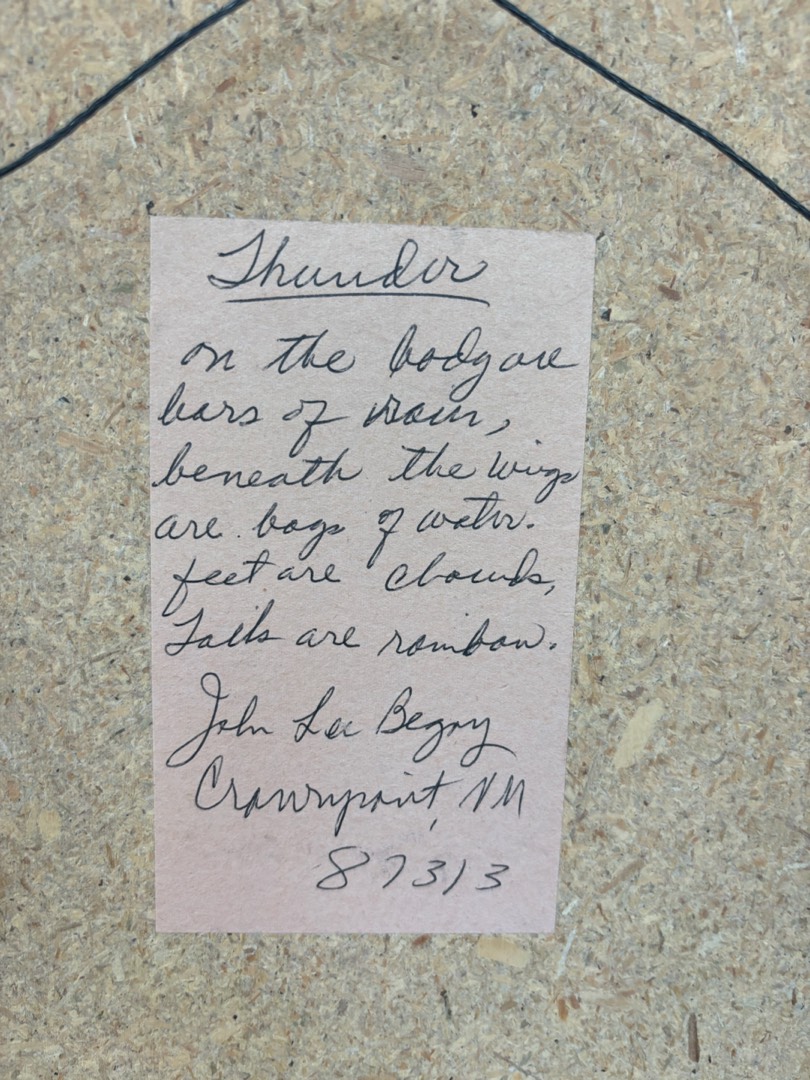 Thunder
on the body are
bars of rain,
beneath the wings
are bags of water.
feet are clouds,
Tails are rainbow.
John Lee Begay
Crownpoint, NM
87313